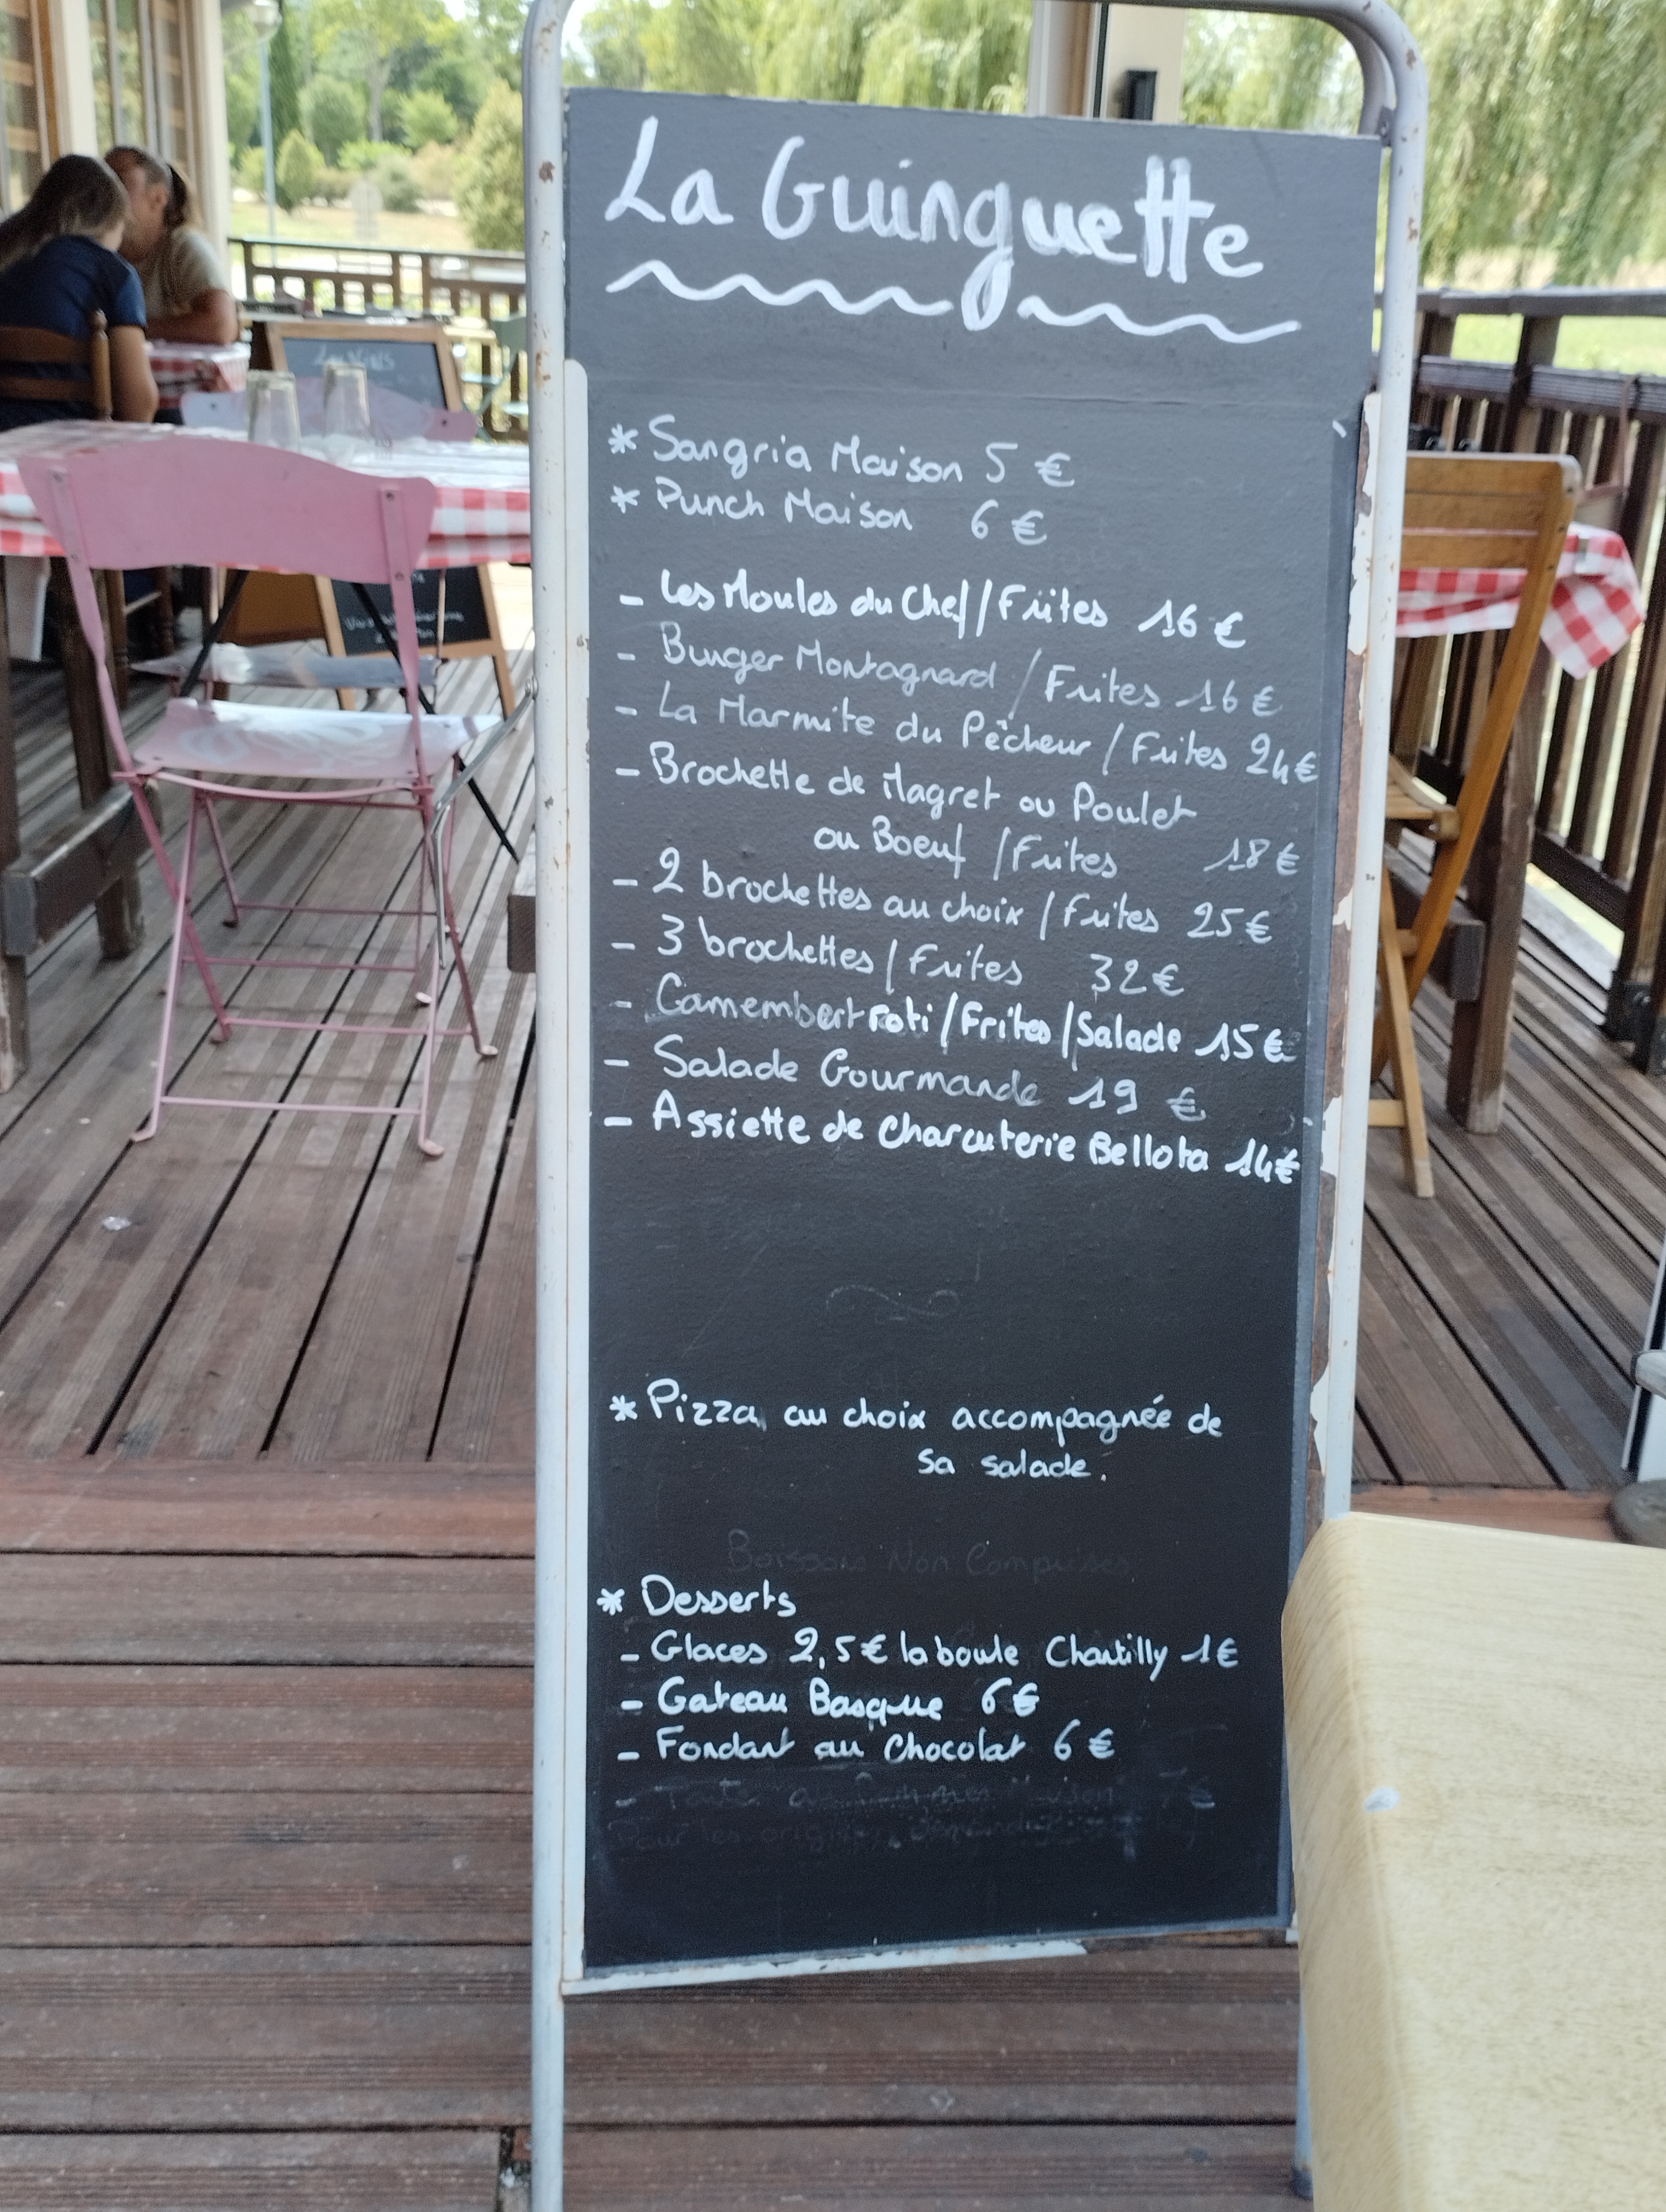 La Guinguette
* Sangria Maison 5 €
* Punch Maison 6 €
- Les Moules du Chef / Frites 16 €
- Burger Montagnard / Frites 16 €
- La Marmite du Pêcheur / Frites 24 €
- Brochette de Magret ou Poulet
ou Boeuf / Frites 18 €
- 2 brochettes au choix / Frites 25 €
- 3 brochettes / Frites 32 €
- Camembert roti / Frites / Salade 15 €
- Salade Gourmande 19 €
- Assiette de Charcuterie Bellota 14 €
* Pizza au choix accompagnée de
sa salade.
Boissons Non Comprises
* Desserts
- Glaces 2,5 € la boule Chantilly 1 €
- Gateau Basque 6 €
- Fondant au Chocolat 6 €